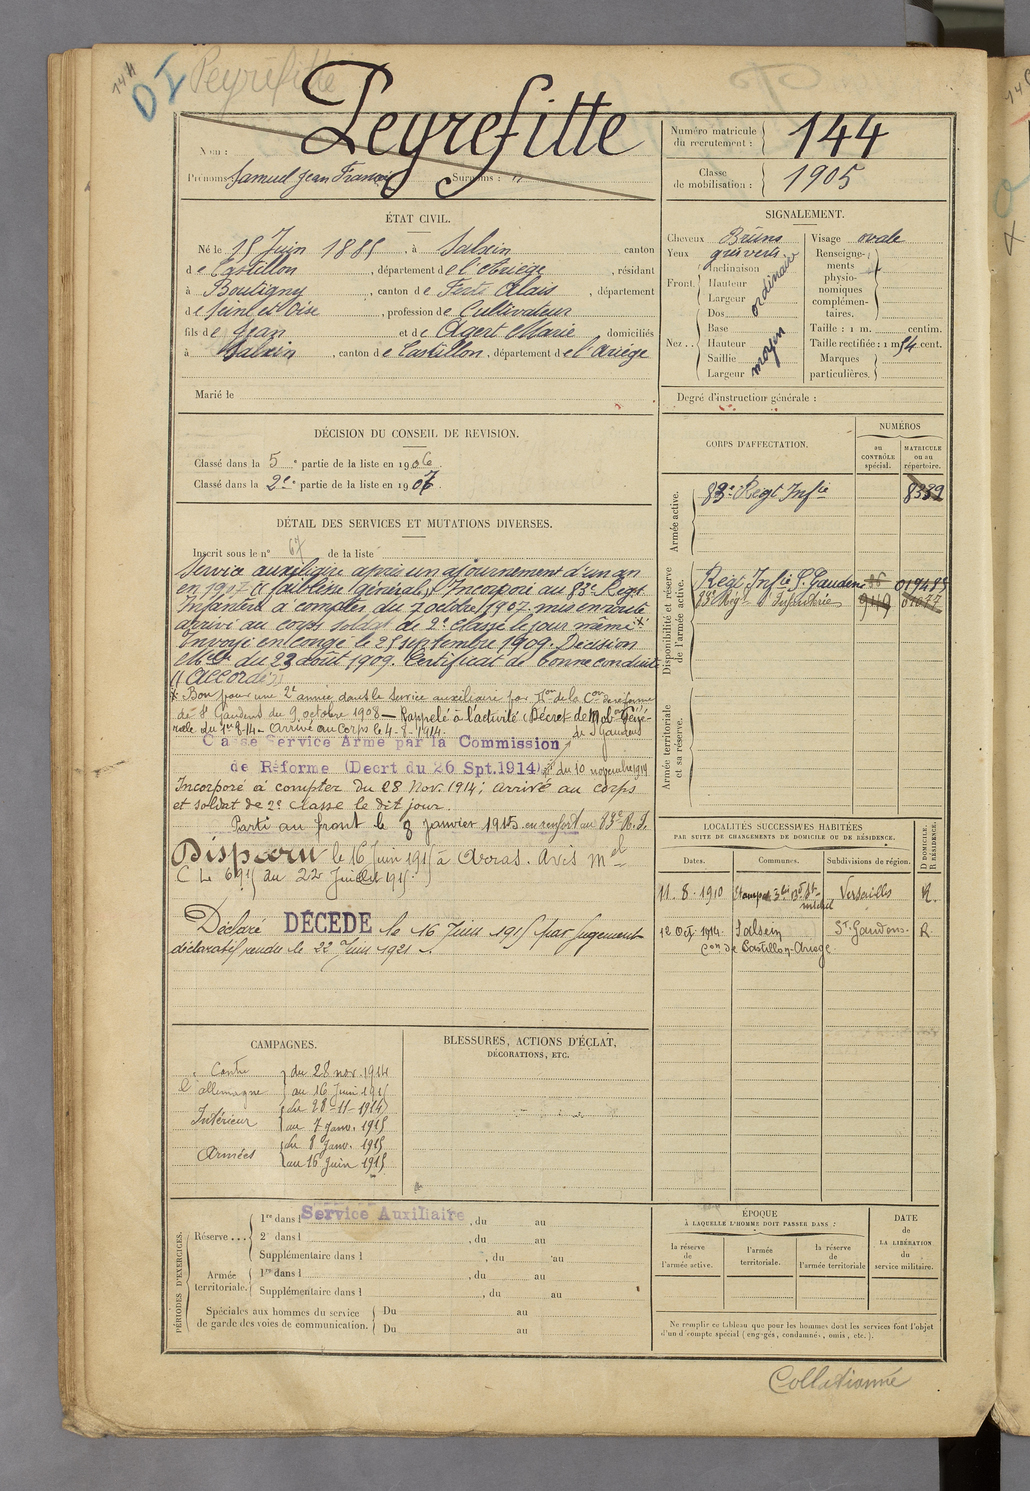 144
DI
Peyrefitte
Peyrefitte
Nom :
Prénoms : Samuel Jean François Surnoms : "
Numéro matricule du recrutement : 144
Classe de mobilisation : 1905
ÉTAT CIVIL.
Né le 15 Juin 1885, à Salsein canton
de Castillon, département de l'Ariège, résidant
à Boutigny, canton de Ferté Alais, département
de Seine et Oise, profession de Cultivateur
fils de Jean et de Agert Marie domiciliés
à Salsein, canton de Castillon, département de l'Ariège
Marié le
SIGNALEMENT.
Cheveux Bruns
Yeux gris verts
Front. Inclinaison
Hauteur
Largeur
ordinaire
Nez . . Dos
Base
Hauteur
Saillie
Largeur
moyen
Visage ovale
Renseignements physionomiques complémentaires.
Taille : 1 m. centim.
Taille rectifiée : 1 m 54 cent.
Marques particulières.
Degré d'instruction générale :
DÉCISION DU CONSEIL DE REVISION.
Classé dans la 5e partie de la liste en 1906
Classé dans la 2e partie de la liste en 1907.
CORPS D'AFFECTATION.
NUMÉROS
au CONTRÔLE spécial.
MATRICULE ou au répertoire.
Armée active.
83e Régt Infie 8339
Disponibilité et réserve de l'armée active.
Régt Infie St Gaudens
83e Régt d'Infanterie 949
Armée territoriale et sa réserve.
DÉTAIL DES SERVICES ET MUTATIONS DIVERSES.
Inscrit sous le n° 67 de la liste
Service auxiliaire après un ajournement d'un an
en 1907 (faiblesse générale). Incorporé au 83e Régt
Infanterie à compter du 7 octobre 1907 mis en route
arrivé au corps soldat de 2e classe le jour même x
Envoyé en congé le 25 septembre 1909. Décision
Melle du 23 août 1909. Certificat de bonne conduite
"Accordé"
x Bon pour une 2e année dans le service auxiliaire par Don de la Con de réforme
de St Gaudens du 9 octobre 1908 — Rappelé à l'activité (Décret de Mobon Géné-
rale du 1er-8-14 — Arrivé au Corps le 4-8-1914.
Classé Service Armé par la Commission de St Gaudens
de Réforme (Décrt du 26 Spt.1914) du 10 novembre 1914
Incorporé à compter du 28 Nov. 1914; arrivé au corps
et soldat de 2e classe le dit jour.
Parti au front le 8 janvier 1915 en renfort au 83e R.I.
Disparu le 16 Juin 1915 à Arras. Avis Mel
C Le 6915 du 22 Juillet 1915.
Déclaré DÉCÉDÉ le 16 Juin 1915 par jugement
déclaratif rendu le 22 Juin 1921.
LOCALITÉS SUCCESSIVES HABITÉES
PAR SUITE DE CHANGEMENTS DE DOMICILE OU DE RÉSIDENCE.
Dates. Communes. Subdivisions de région. D DOMICILE. R RÉSIDENCE.
11. 8. 1910 Etampes 3 bis Bd St-Michel Versailles R.
12 Oct. 1914 Salsein St Gaudens. R
Con de Castillon-Ariège
CAMPAGNES.
Contre l'allemagne du 28 nov. 1914
au 16 Juin 1915
Intérieur du 28-11-1914
au 7 Janv. 1915
Armées du 8 Janv. 1915
au 16 Juin 1915
BLESSURES, ACTIONS D'ÉCLAT,
DÉCORATIONS, ETC.
PÉRIODES D'EXERCICES.
Réserve . . .
1re dans l Service Auxiliaire, du au
2e dans l , du au
Supplémentaire dans l , du au
Armée territoriale.
1re dans l , du au
Supplémentaire dans l , du au
Spéciales aux hommes du service de garde des voies de communication.
Du au
Du au
ÉPOQUE
À LAQUELLE L'HOMME DOIT PASSER DANS :
la réserve de l'armée active.
l'armée territoriale.
la réserve de l'armée territoriale
DATE DE LA LIBÉRATION du service militaire.
Ne remplir ce tableau que pour les hommes dont les services font l'objet
d'un décompte spécial (engagés, condamnés, omis, etc.).
Collationné